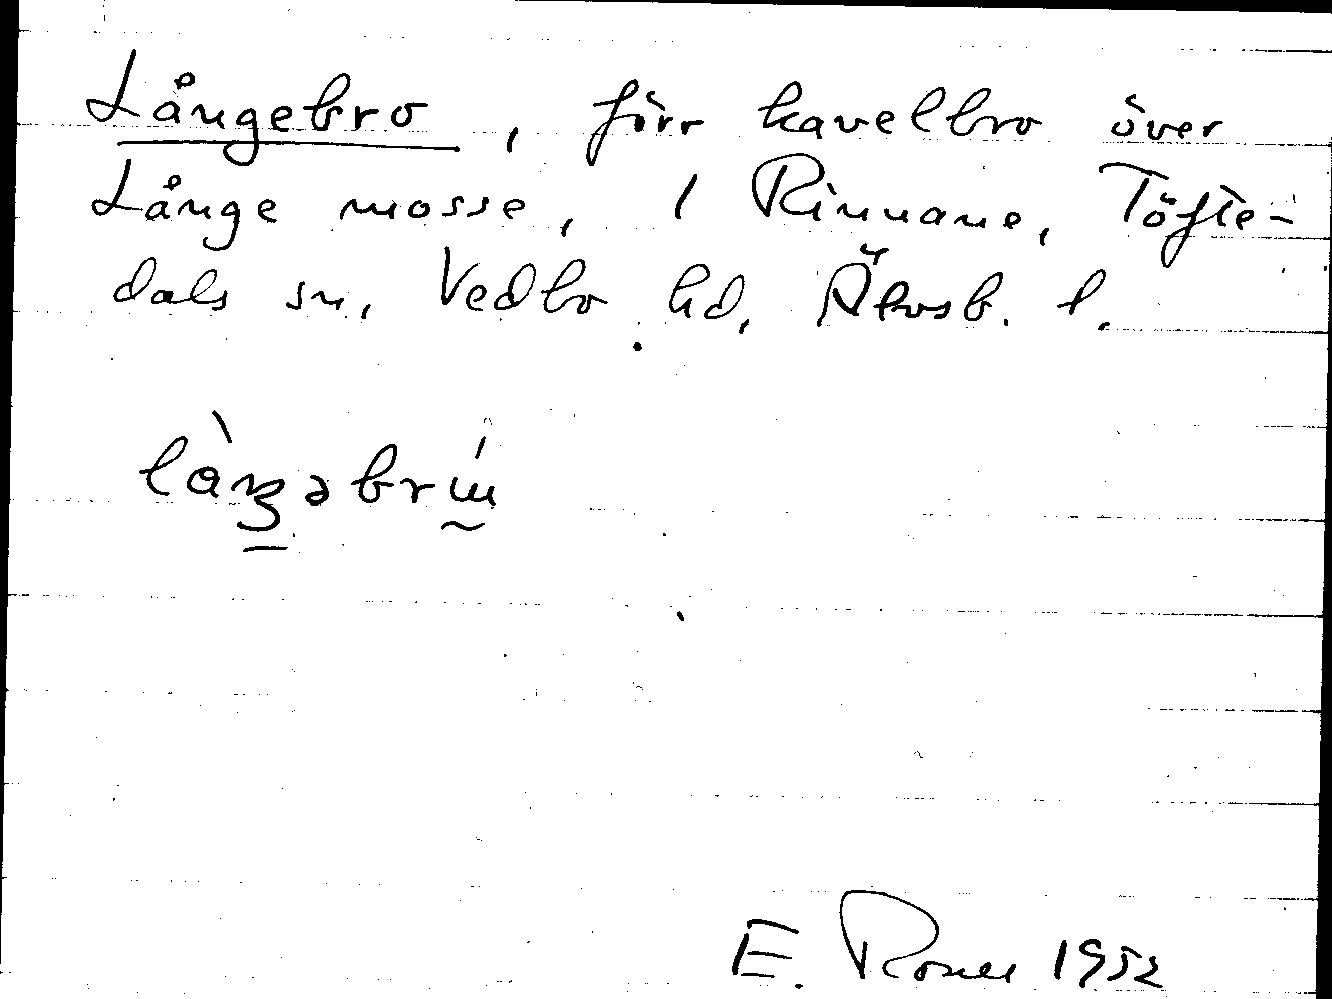 Långebro, förr kavelbro över
Långe mosse, i Rinnane, Töfte-
dals sn, Vedbo hd, Älvsb. l.
E. Rosell 1952